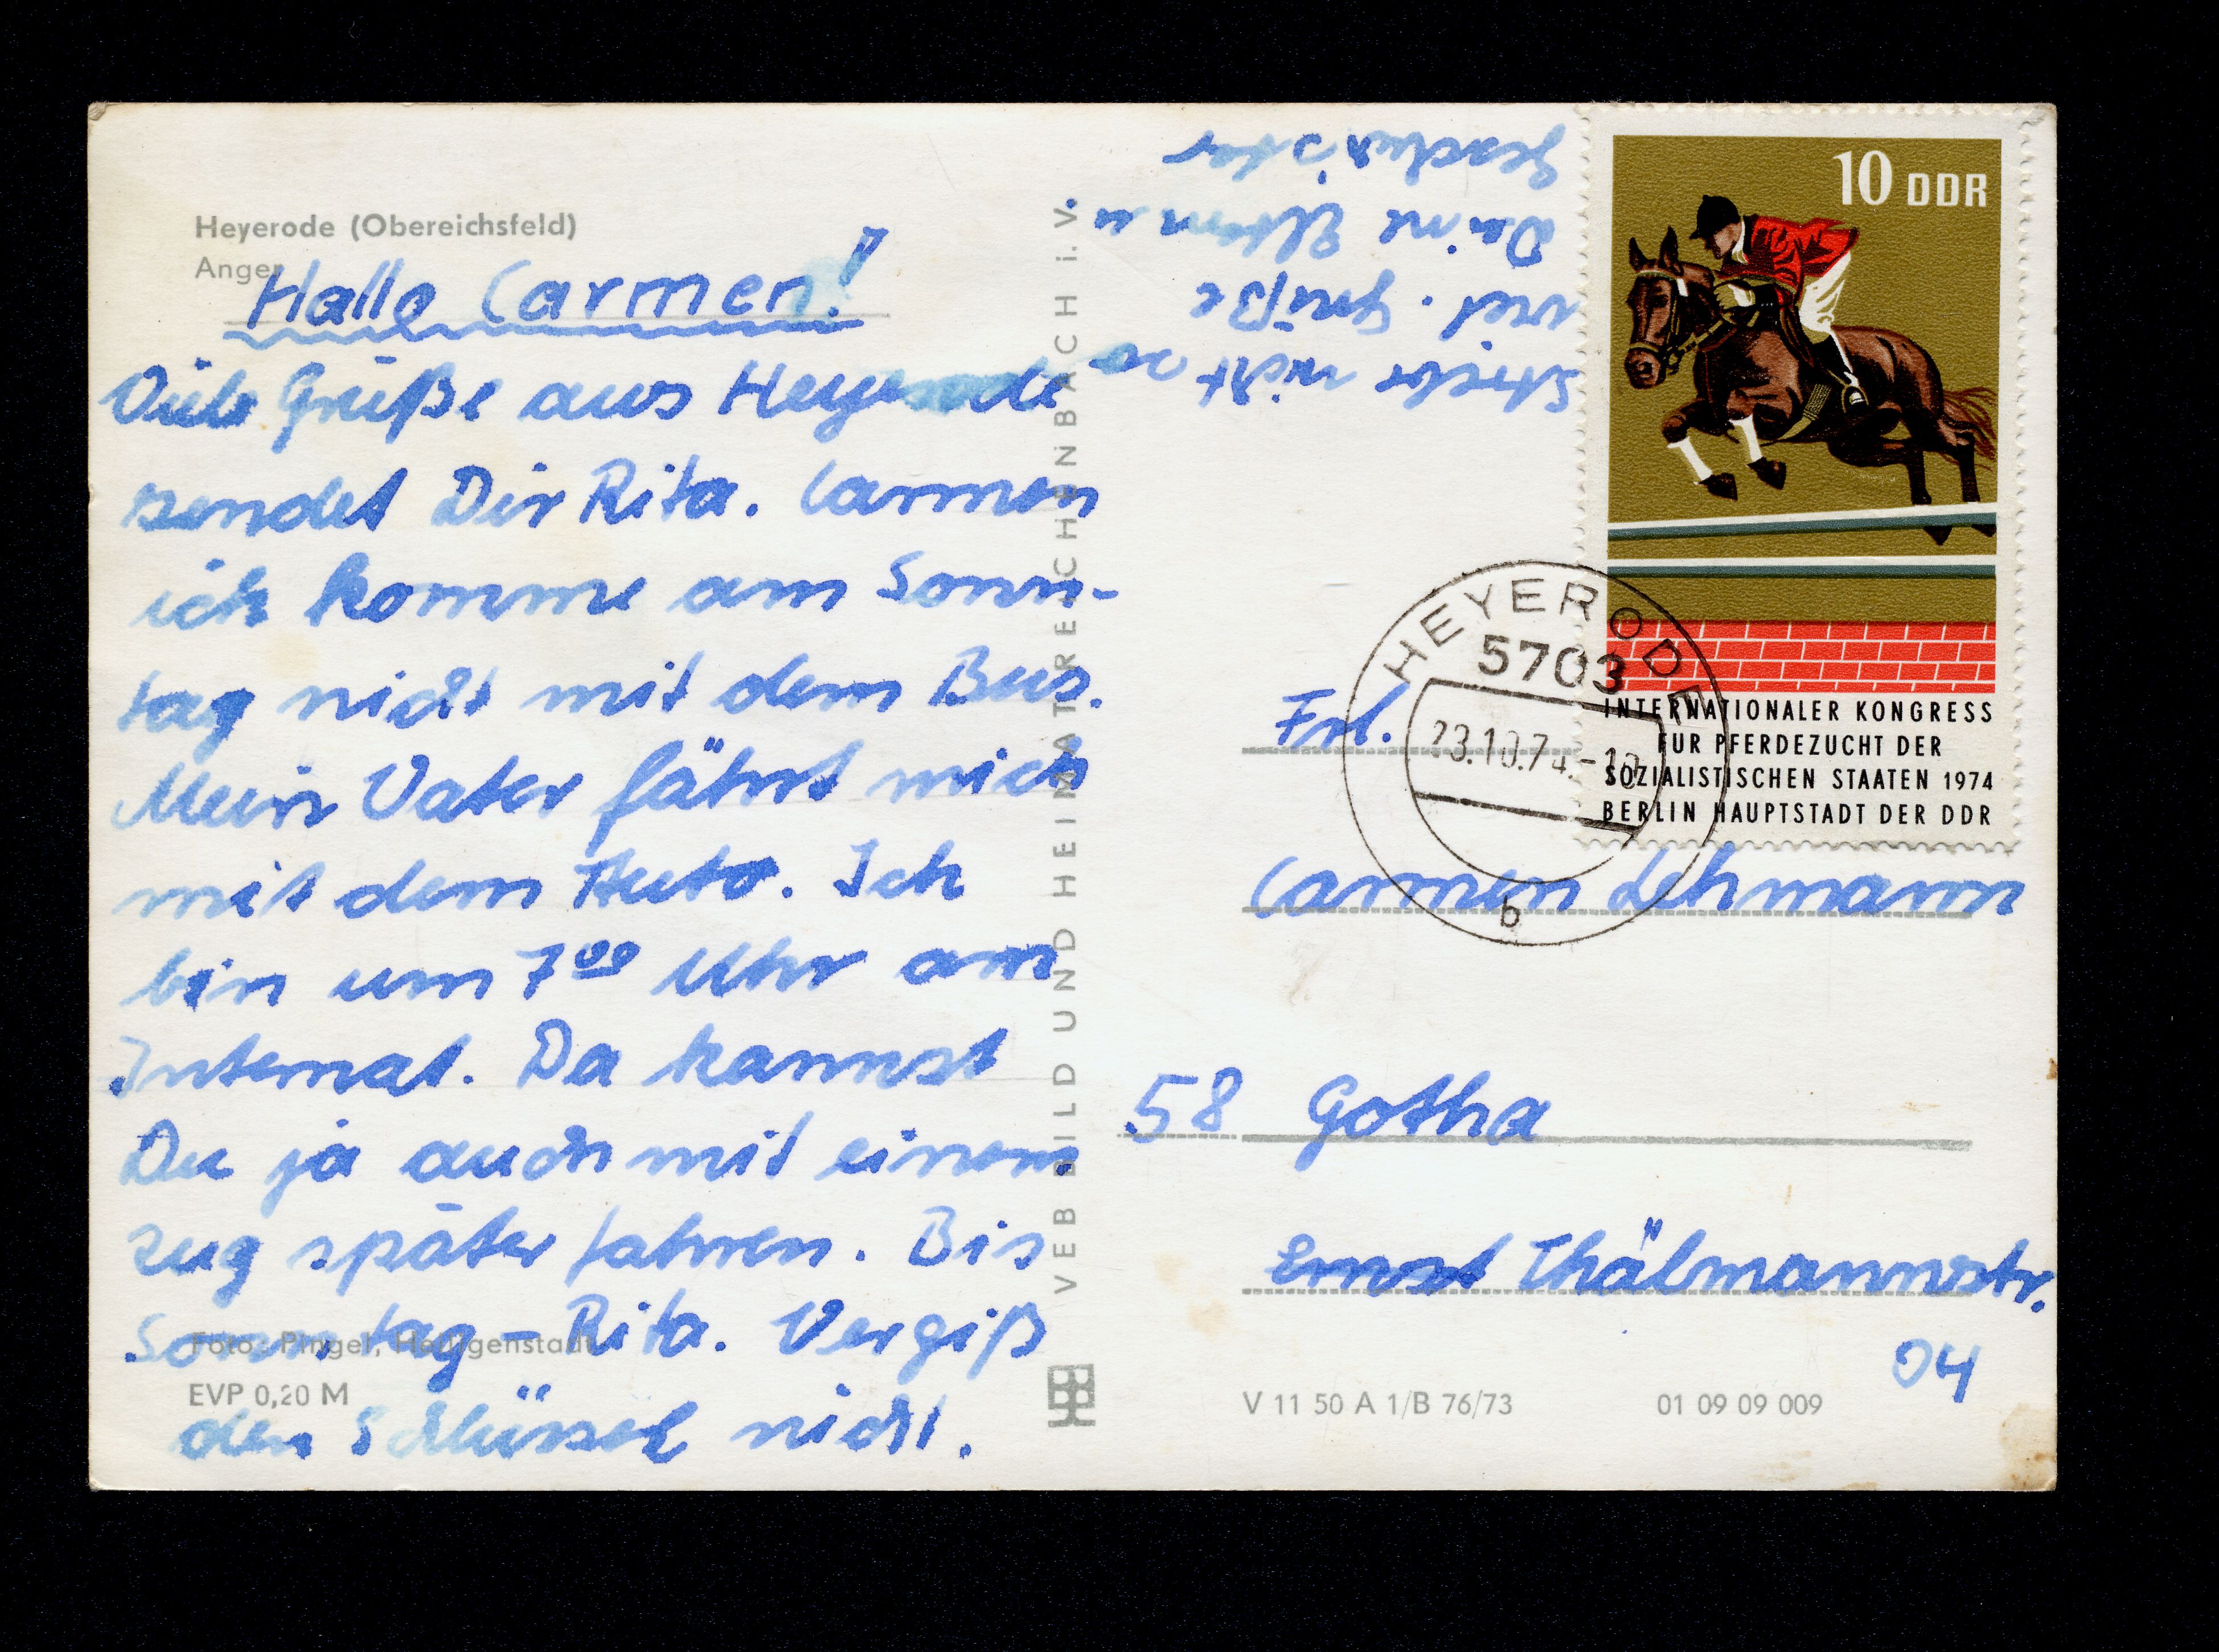 Heyerode (Obereichsfeld)
Anger
Hallo Carmen!
Viele Grüße aus Heyerode
sendet Dir Rita. Carmen
ich komme am Sonn-
tag nicht mit dem Bus.
Mein Vater fährt mich
mit dem Auto. Ich
bin um 7⁰⁰ Uhr am
Internat. Da kannst
Du ja auch mit einem
Zug später fahren. Bis
Sonntag – Rita. Vergiß
den Schlüssel nicht.
Foto: Pingel, Heiligenstadt
EVP 0,20 M
VEB BILD UND HEIMAT REICHENBACH i. V.
nicht so
viel. Grüße
Deine Eltern u
Geschwister
10 DDR
INTERNATIONALER KONGRESS
FÜR PFERDEZUCHT DER
SOZIALISTISCHEN STAATEN 1974
BERLIN HAUPTSTADT DER DDR
HEYERODE
5703
23.10.74.-10
b
Frl.
Carmen Lehmann
58 Gotha
Ernst Thälmannstr.
04
V 11 50 A 1/B 76/73
01 09 09 009